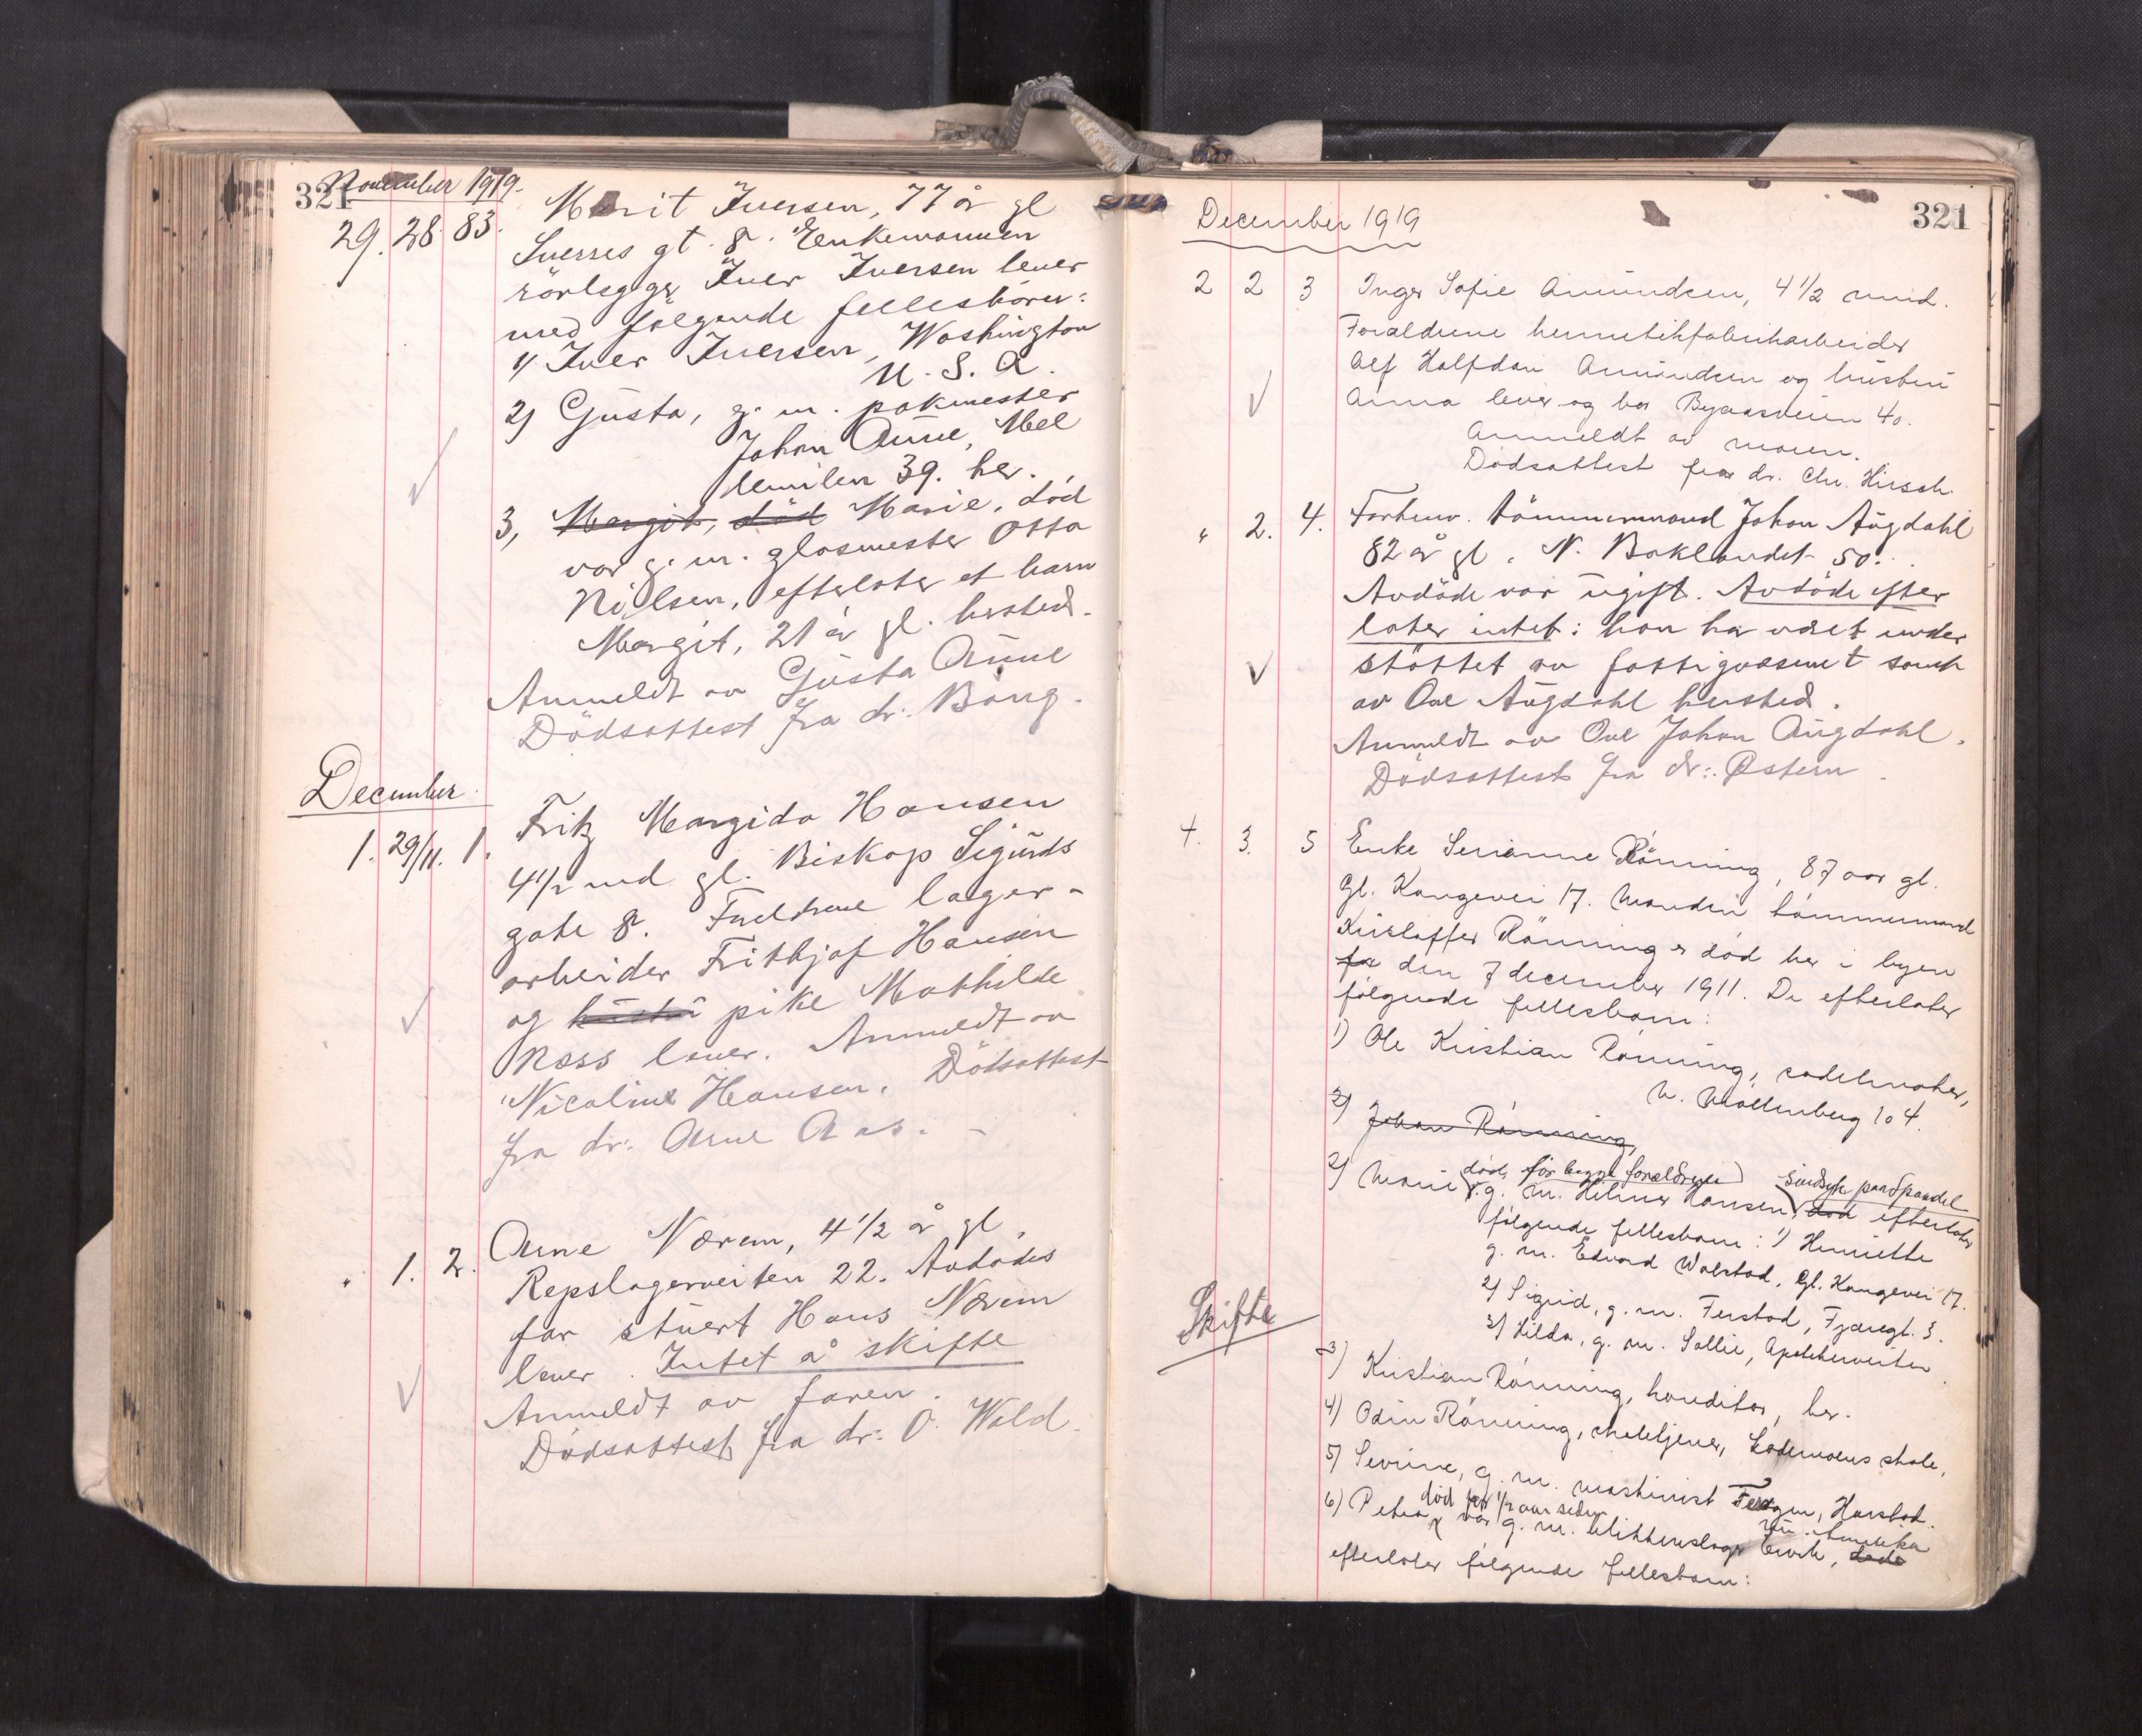 321
November 1919.
29. 28 83. Marit Iversen, 77 år gl
Sverres gt. 8. Enkemannen
rørlegger Iver Iversen lever
med følgende fellesbörn:
1) Iver Iversen, Washington
U. S. A.
2) Gusta, g. m. pakmester
Johan Aune, Mel
lemilen 39. her.
3, Margit, död Marie, död
var g. m. glasmester Otto
Nilsen, efterlater et barn
Margit, 21 år gl. hersteds.
Anmeldt av Gusta Aune
Dödsattest fra dr: Bang.
December.
1. 29/11. 1. Fritz Margido Hansen
4 1/2 md gl. Biskop Sigurds
gate 8. Foreldrene lager-
arbeider Frithjof Hansen
og hustru pike Mathilde
Ross lever. Anmeldt av
Nicoline Hansen. Dödsattest
fra dr: Arne Aas. -
" 1. 2. Arne Nærem, 4 1/2 år gl.
Repslagerveiten 22. Avdödes
far stuert Hans Nærem
lever. Intet å skifte
Anmeldt av faren.
Dödsattest fra dr: O. Wold.
321
December 1919
2 2 3 Inger Sofie Amundsen, 4 1/2 mnd.
Forældrene hermetikfabrikarbeider
Alf Halfdan Amundsen og hustru
Anna lever og bor Byaasveien 40.
Anmeldt av moren.
Dödsattest fra dr. Chr. Hirsch.
" 2. 4. Forhenv. tömmermand Johan Augdahl
82 år gl. N. Baklandet 50.
Avdöde var ugift. Avdöde efter
later intet: han har været under
stöttet av fattigvæsenet samt
av Ove Augdahl hersted.
Anmeldt av Ove Johan Augdahl.
Dödsattest fra dr: Østern.
4. 3. 5 Enke Serianne Rönning, 87 aar gl.
Gl. Kongevei 17. Manden tömmermand
Kristoffer Rönning er död her i byen
fra den 7 december 1911. De efterlater
følgende fellesbarn:
1) Ole Kristian Rönning, sadelmaker,
N. Möllenberg 104.
2) Johan Rönning,
död, før begge forældrene) sindsyk paa Spandel
2) Marie v. g. m. Hilmer Hansen, död efterlater
følgende fellesbarn: 1) Henriette
g. m. Edvard Wolstad, Gl. Kongevei 17.
2) Sigrid, g. m. Ferstad, Fjæregt. 3.
3) Hilda, g. m. Sollie, Apothekerveiten
Skifte
3) Kristian Rönning, konditor, her.
4) Odin Rönning, skoletjener, Lademoens skole,
5) Sevrine, g. m. maskinist Fergen, Harstad.
död for 1/2 aar siden
6) Petra var g. m. blikkenslager Ervik, döde
nu i Amerika
efterlater følgende fellesbarn: